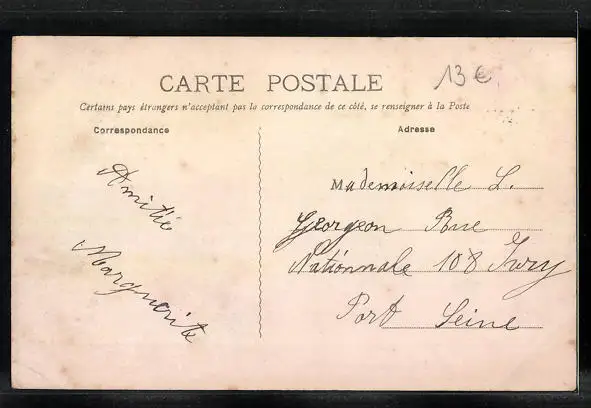 CARTE POSTALE
13 €
Certains pays étrangers n'acceptant pas la correspondance de ce côté, se renseigner à la Poste
Correspondance
Adresse
Amitié
Marguerite
Mademoiselle L.
Georgeon Rue
Nationnale 108 Ivry
Port Seine